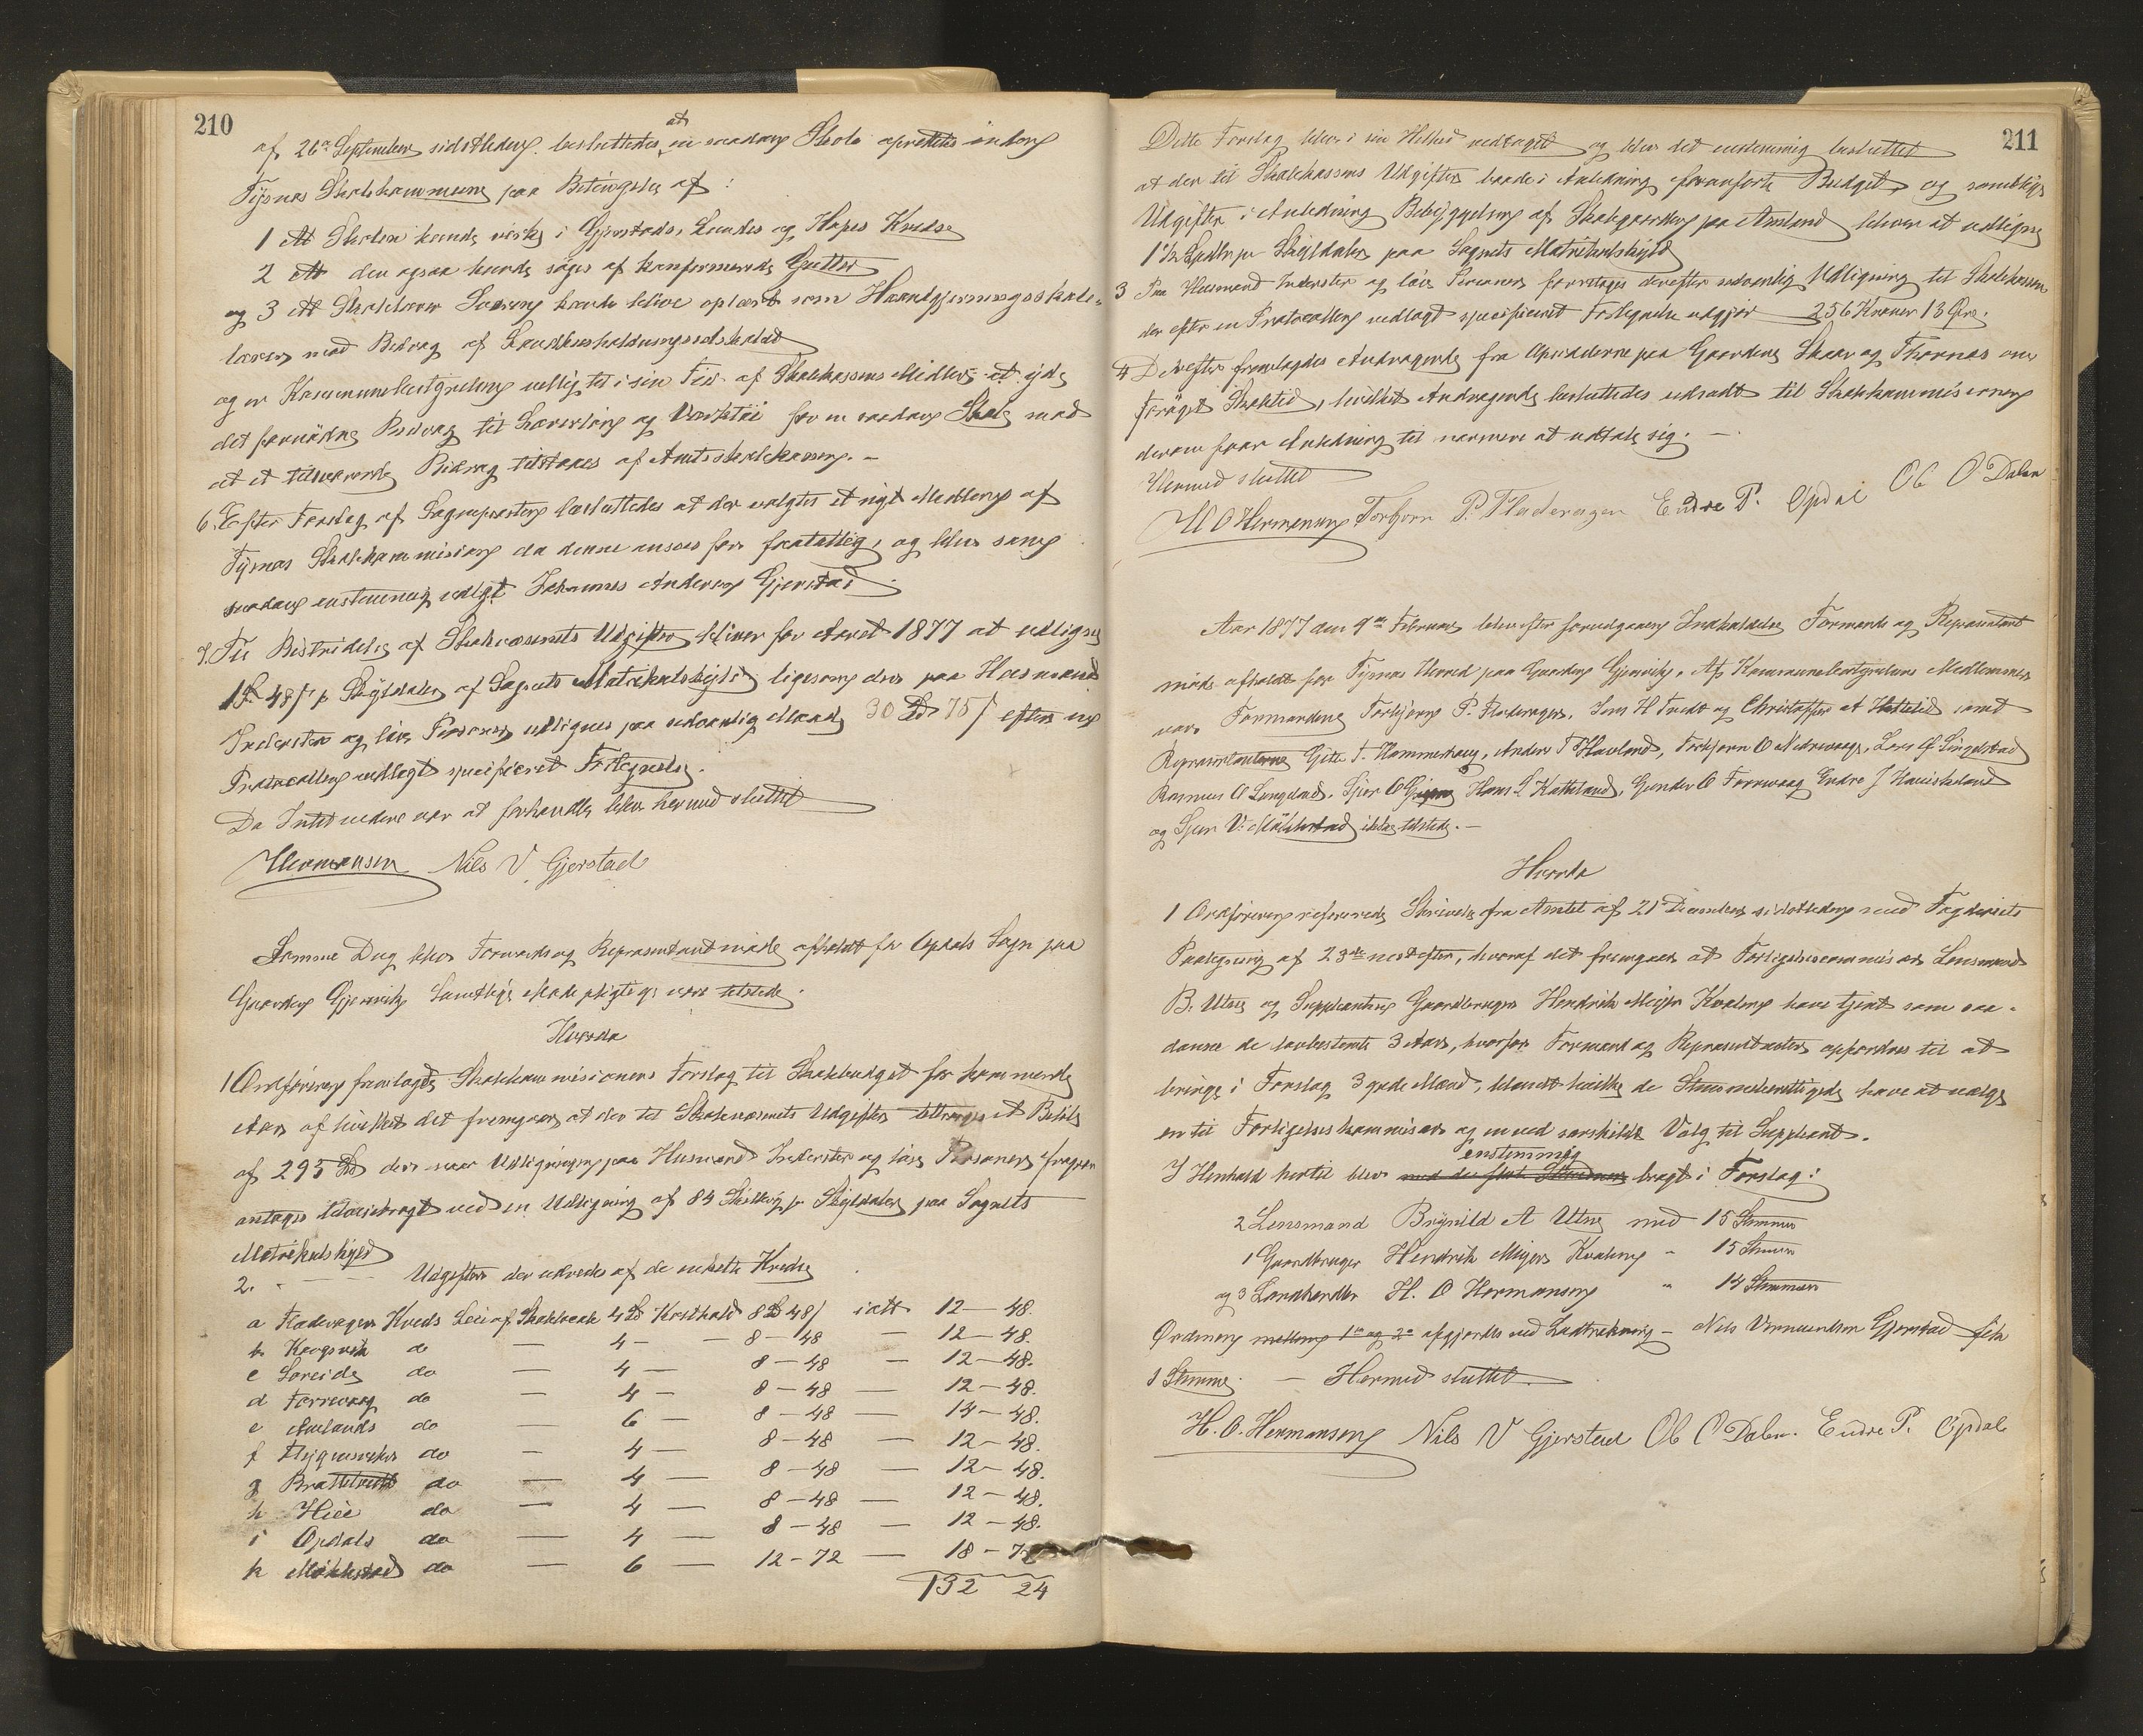 210
af 26de September sidstleden besluttedes, at en saadan Skole oprettes inden
Tysnæs Skolekommune paa Betingelse af :
1 At Skolen kunde virke i Gjerstads, Lundes og Hopes Kredse
2 At den ogsaa kunde søges af konfirmerede Gutter
og 3 At Skolelærer kunde blive oplært som Haandgjerningsskole-
lærer med Bidrag af Landhusholdningsselskabet
og er Kommunebestyrelsen villig til i sin Tid af Skolekassens Midler at yde
det fornødne Bidrag til Lærerløn og Værktøi for en saadan Skole mod
at et tilsvarende Bidrag tilstaaes af Amtsskolekassen. -
6. Efter Forslag af Sognepræsten besluttedes at der valgtes et nyt Medlem af
Tysnæs Skolekommission da denne ansees for faatallig, og blev som
saadan enstemmig valgt Johannes Andersen Gjerstad
7. Til Bestridelse af Skolevæsenets Udgifter bliver for Aaret 1877 at udligne
48 / pr Skylddaler af Sognets Matrikulskyld, ligesom der paa Husmænd
Inderster og løse Personer udlignes paa sedvanlig Maade 30 Spd 75 / efter en
Protocollen vedlagt specificeret Fortegnelse.
Da Intet videre var at forhandle blev hermed sluttet
Hermansen Nils V. Gjerstad
Samme Dag blev Formands og Repræsentantmøde afholdt for Opdals Sogn paa
Gaarden Gjersvik. Samtlige Mødepligtige vare tilstede.
Hvorda
1 Ordføreren fremlagde Skolekommissionens Forslag til Skolebudget for kommende
Aar af hvilket det fremgaar at der til Skolevæsenets Udgifter tiltrænges et Beløb
af 295 Spd der naar Udligningen paa Husmænd Inderster og løse Personer fragaar
antages tilveiebragt ved en Udligning af 84 Skilling pr Skylddaler paa Sognets
Matrikulskyld
2. - Udgifter der udredes af de enkelte Kredse
a Fladevagen Kreds Leie af Skolelocale 4 Spd Kosthold 8 Spd 48 / ialt 12 — 48.
b. Kaagsvik do — 4 - — 8 - 48 — 12 — 48.
c Søreide do — 4 — 8 - 48 — 12 — 48.
d Færevaag do — 4 — 8 - 48 — 12 — 48.
e Amlands do — 6 — 8 - 48 — 14 — 48.
f do — 4 — 8 - 48 — 12 — 48.
g do — 4 — 8 - 48 — 12 — 48.
h do — 4 — 8 - 48 — 12 — 48.
i Opdals do — 4 — 8 - 48 — 12 — 48.
k do — 6 — 12 - 72 — 18 - 72
132 24
211
Dette Forslag blev i sin Helhed vedtaget og blev det enstemmig besluttet
at der til Skolekassens Udgifter baade i Anledning foranførte Budget, og samtlige
Udgifter i Anledning Bebyggelsen af Skolegaarden paa Amland bliver at udligne
1 1/2 pr Skylddaler paa Sognets Matrikulskyld
3 Paa Husmænd Inderster og løse Personer foretages derefter sedvanlig Udligning til Skolekassen
der efter en Protocollen vedlagt specificeret Fortegnelse udgjør 256 Kroner 13 Øre.
4 Derefter fremlagdes Andragende fra Opsidderne paa Gaardene Skaar og Thornæs om
forøget Skoletid, hvilket Andragende besluttedes udsadt til Skolekommissionen
derom faar Anledning til nærmere at udtale sig. -
Hermed sluttet
H O Hermansen Torbjørn P. Fladevagen Endre P. Opdal Ol O Dalen
Aar 1877 den 9de Februar blev efter forudgaaen Indkaldelse Formands og Repræsentant
møde afholdt for Tysnæs Herred paa Gaarden Gjersvik. Af Kommunebestyrelsens Medlemmer
var Formændene Torbjørn P. Fladevagen, Jens H Tvedt og Christoffer at samt
Repræsentanterne T. Hammerhaug, Anders T Hovland, Torbjørn O Nedrevaage, Lars
Rasmus O . Sjur O Hans L Katteland, Gunder O Færevaag Endre J
og Sjur V. ikke tilstede. -
Hvorda
1 Ordføreren refererede Skrivelse fra Amtet af 21 December sidstleden med Fogderiets
Paategning af 23de næstefter, hvoraf det fremgaar at Forligelsescommissær Lensmand
B. Utne og Suppleanten Gaardbruger Hendrik Meyer Kvalen have tjent som saa-
danne de lovbestemte 3 Aar, hvorfor Formænd og Repræsentanter opfordres til at
bringe i Forslag 3 gode Mænd, blandt hvilke de Stemmeberettigede have at vælge
en til Forligelseskommissær og en ved særskildt Valg til Suppleant.
I Henhold hertil blev med de fleste Stemmer enstemmig bragt i Forslag :
2 Lensmand Brynild A Utne med 15 Stemmer
1 Gaardbruger Hendrik Meyer Kvalen " 15 Stemmer
og 3 Landhandler H. O Hermansen " 14 Stemmer
Ordenen mellem 1ste og 2de afgjordes ved Lodtrækning - Nils Gjerstad fik
1 Stemme. — Hermed sluttet.
H. O. Hermansen Nils V Gjerstad Ol O Dalen. Endre P. Opdal